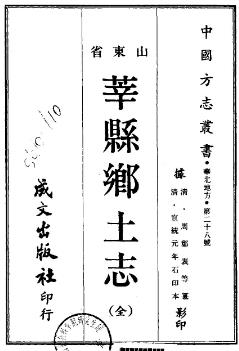 中國方志叢書·華北地方·第二十八號
據
清·周鄭表等纂
清·宣統元年石印本
影印
山東省
莘縣鄉土志
(全)
成文出版社印行